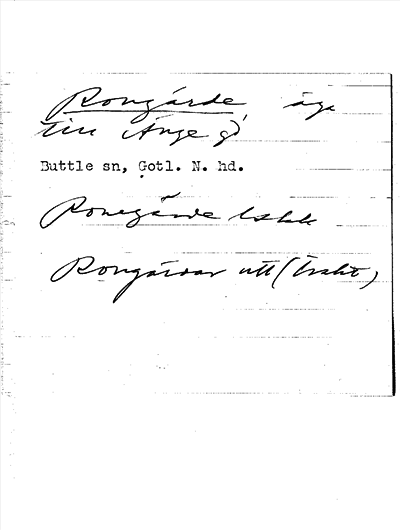 Rongärde, äga
till Änge gd
Buttle sn, Gotl. N. hd.
Ronegärde
Rongärdar utt